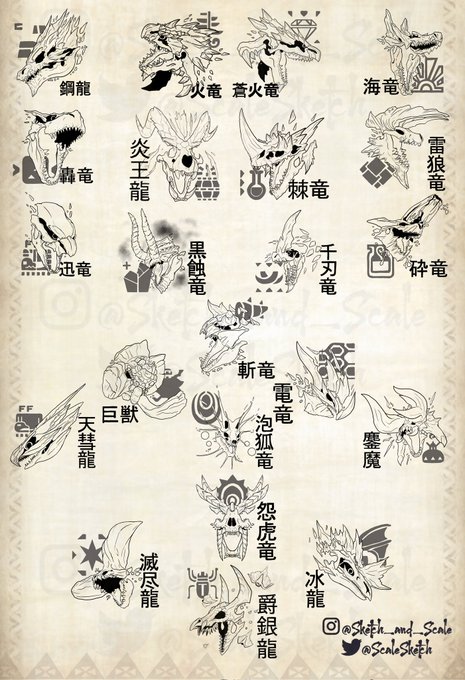 鋼龍
火竜
蒼火竜
海竜
轟竜
炎王龍
棘竜
雷狼竜
迅竜
黒蝕竜
千刃竜
砕竜
斬竜
巨獣
電竜
天彗龍
泡狐竜
鏖魔
怨虎竜
滅尽龍
爵銀龍
冰龍
FF
@Sketch_and_Scale
@ScaleSketch
@Sketch_and_Scale